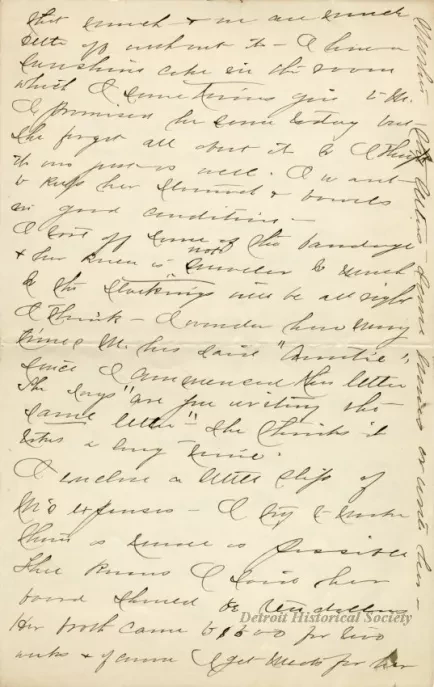 that much & we are much
better off without it – I have a
Sunshine cake in the room
which I sometimes give to M.
I promised her some today but
she forgot all about it so I think
it was just as well. I want
to keep her stomach & bowels
in good condition. –
I tore off some of the bandage
& her knee is not swollen so much
so the stockings will be all right
I think – I wonder how many
times M. has said "Auntie",
since I commenced this letter
She says "are you writing the
same letter" She thinks it
takes a long time.
I enclose a little slip of
M's expenses – I try to make
them as small as possible
She knows I said her
board should be ten dollars
Her broth came to $5.00 for two
weeks & of course I get meals for her
Detroit Historical Society